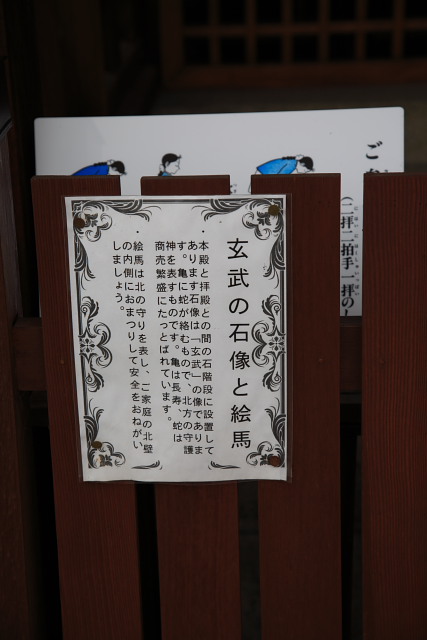 玄武の石像と絵馬
・本殿と拝殿との間の石階段に設置して
あります石像は「玄武」の像でありま
す。亀に蛇が絡むもので、北方の守護
神を表すものです。亀は長寿、蛇は
商売繁盛にたっとばれています。
・絵馬は北の守りを表し、ご家庭の北壁
の内側におまつりして安全をおねがい
しましょう。
ご
(二拝二拍手一拝の